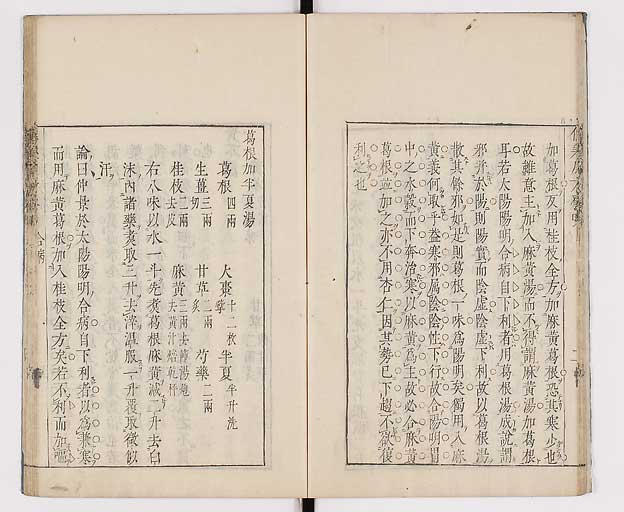 加葛根反用桂枝全方加麻黃葛根恐其寒少也
故雖意主加入麻黃湯而不得謂麻黃湯加葛根
耳若太陽陽明合病自下利者用葛根湯成說謂
邪并於陽則陽實而陰虛陰虛下利故以葛根湯
散其餘邪如是則葛根一味爲陽明矣獨用入麻
黃義何取乎蓋寒邪屬陰陰性下行故合陽明胃
中之水穀而下奔治寒以麻黃爲主故必合麻黃
葛根並加之亦不用杏仁因其勢已下趨不欲復
利之也
葛根加半夏湯
葛根四兩 大棗十二枚擘 半夏半升洗
生薑三兩切 甘草二兩炙 芍藥二兩
桂枝二兩去皮 麻黃三兩去節湯泡去黃汁焙乾秤
右八味以水一斗先煮葛根麻黃減二升去白
沫內諸藥煮取三升去滓溫服一升覆取微似
汗
論曰仲景於太陽陽明合病自下利者以爲兼寒
而用麻黃葛根加入桂枝全方矣若不利而加嘔
合病